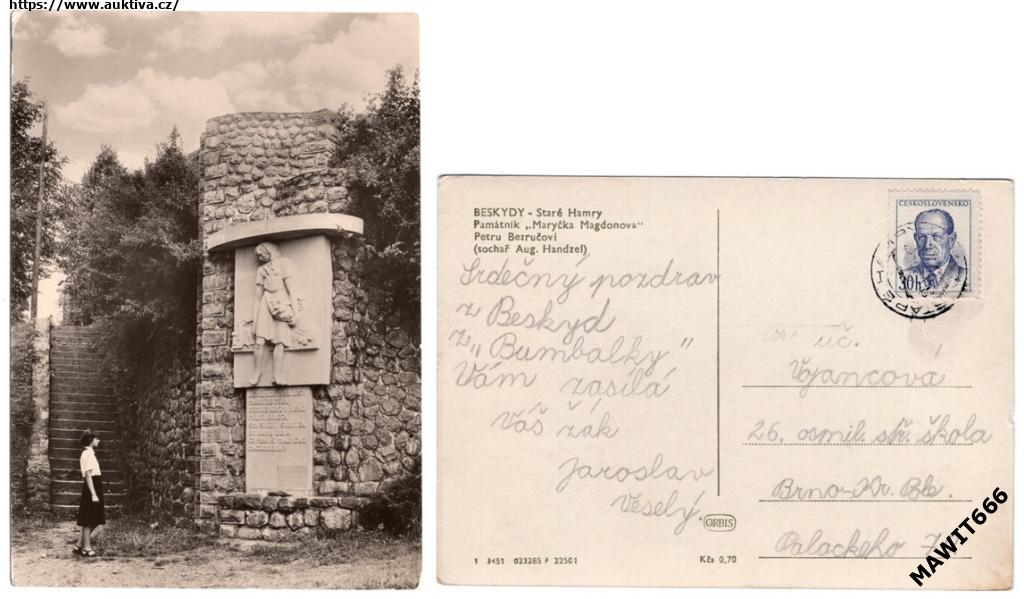 https://www.auktiva.cz/
BESKYDY - Staré Hamry
Památník „Maryčka Magdonova"
Petru Bezručovi
(sochař Aug. Handzel)
Srdečný pozdrav
z Beskyd
z „Bumbalky"
Vám zasílá
Váš žák
Jaroslav
Veselý.
ORBIS
1 3451 023285 F 22501
Kčs 0,70
ČESKOSLOVENSKO
30h
uč.
Vojancová
26. osmil. stř. škola
Brno-Kr. Pole.
Palackého
MAWIT666